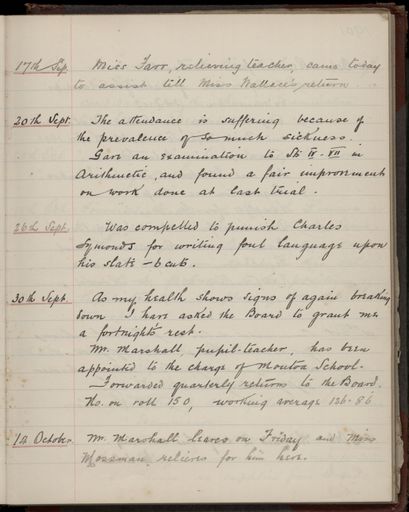 17th Sep. Miss Tarr, relieving teacher, came today
to assist till Miss Wallace's return.
20th Sept The attendance is suffering because of
the prevalence of so much sickness.
Gave an examination to Sts IV-VII in
Arithmetic and found a fair improvement
on work done at last trial.
26th Sept. Was compelled to punish Charles
Symonds for writing foul language upon
his slate - 6 cuts.
30th Sept. As my health shows signs of again breaking
down I have asked the Board to grant me
a fortnight's rest.
Mr. Marshall, pupil-teacher, has been
appointed to the charge of Moutoa School.
Forwarded quarterly returns to the Board.
No. on roll 150, working average 126.86
1st October. Mr. Marshall leaves on Friday and Miss
Mossman relieves for him here.